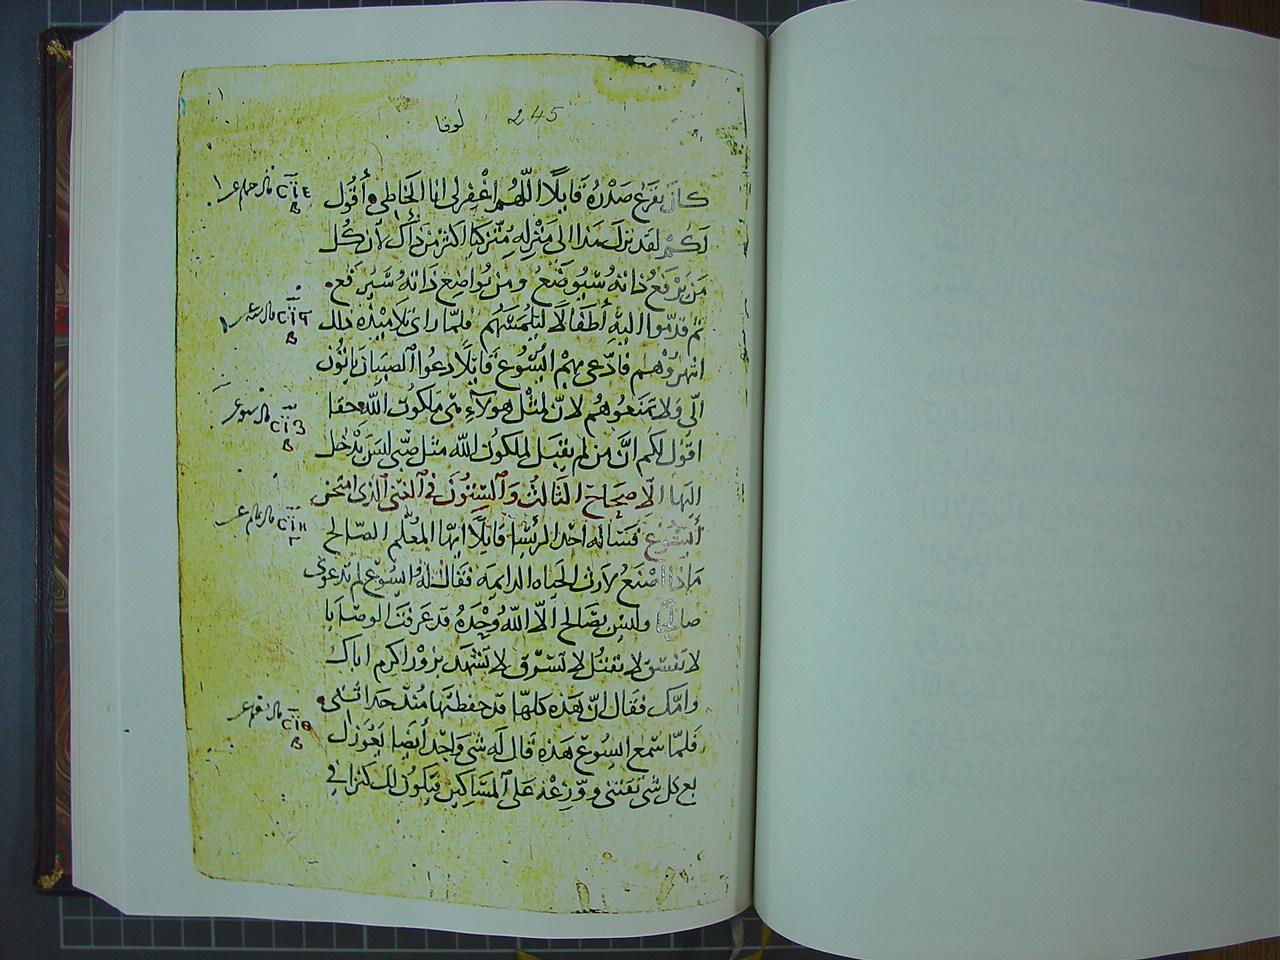 لوقا 245
كان يقرع صدره قايلًا اللهم اغفر لى انا الخاطى أقول
لكم لقد نزل هذا الى منزله متزكيا اكثر من ذاك لان كل
من يرفع ذاته سيوضع ومن يواضع ذاته سيرفع
ثم قدموا اليه أطفالًا ليلمسهم فلما راى تلاميذه ذلك
انتهروهم فادعى بهم اليسوع قايلًا دعوا الصبيان ياتون
الى ولا تمنعوهم لان لمثل هولاء هى ملكوت الله حقا
اقول لكم ان من لم يقبل لملكوت الله مثل صبى ليس يدخل
اليها الاصحاح الثالث والستون فى الغنى الذى امتحن
أيسوع فساله احد الريسا قايلًا ايها المعلم الصالح
ماذا اصنع لارث الحياه الدايمه فقال له اليسوع لم تدعونى
صالحًا وليس بصالح الا الله وحده قد عرفت الوصايا
لا تفسق لا تقتل لا تسرق لا تشهد بزور اكرم اباك
وامك فقال ان هذه كلها قد حفظتها منذ حداثتى
فلما سمع اليسوع هذه قال له شى واحد أيضا يعوزك
بع كل شى تقتنى ووزعه على المساكين فيكون لك كنزا فى